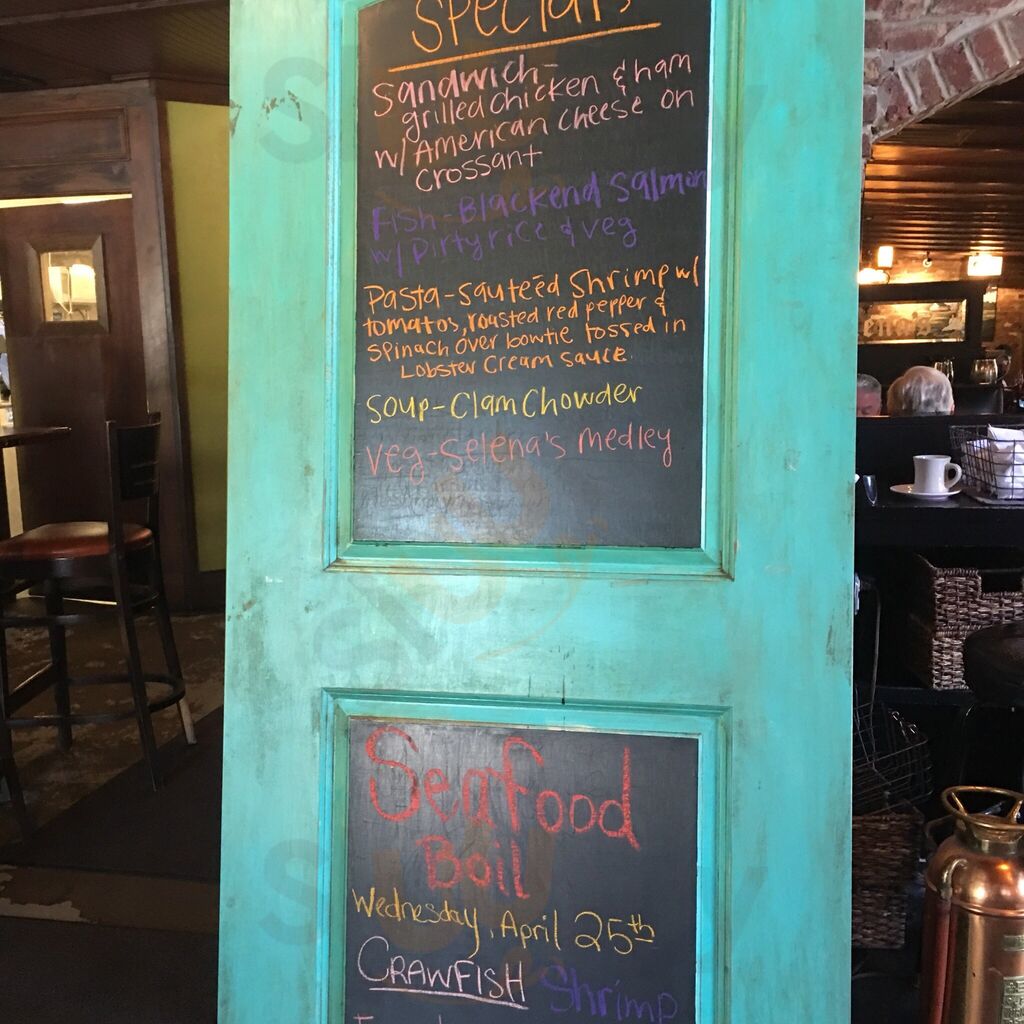 Specials
Sandwich-
grilled chicken & ham
w/ American cheese on
crossant
Fish-Blackend Salmon
w/ Dirty rice & veg
Pasta-sauteéd Shrimp w/
tomatos, roasted red pepper &
spinach over bowtie tossed in
Lobster Cream sauce.
Soup-Clam Chowder
veg-Selena's medley
Seafood
Boil
Wednesday, April 25th
CRAWFISH Shrimp